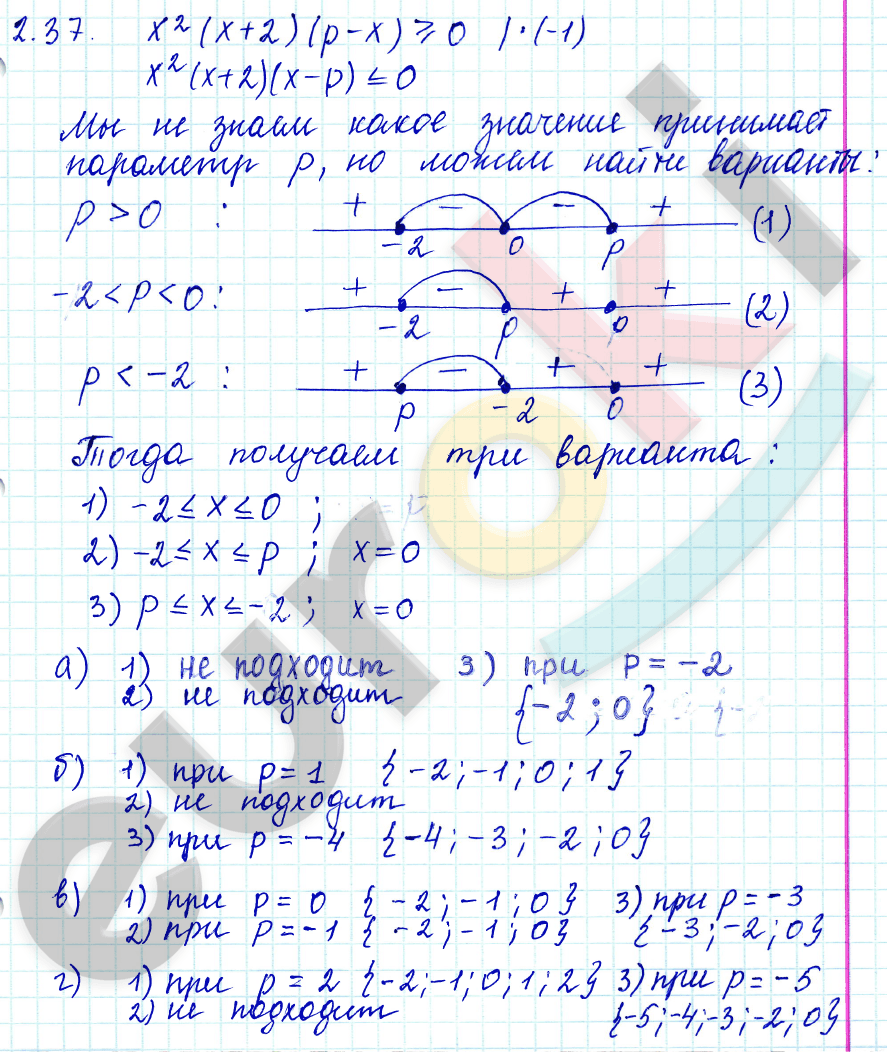 2.37. x² (x+2) (p-x) ≥ 0 | · (-1)
x² (x+2)(x-p) ≤ 0
Мы не знаем какое значение принимает
параметр p, но можем найти варианты:
p > 0 : + − − + -2 0 p (1)
-2 < p < 0 : + − + + -2 p 0 (2)
p < -2 : + − + + p -2 0 (3)
Тогда получаем три варианта:
1) -2 ≤ x ≤ 0 ;
2) -2 ≤ x ≤ p ; x = 0
3) p ≤ x ≤ -2 ; x = 0
а) 1) не подходит 3) при p = -2
2) не подходит {-2 ; 0}
б) 1) при p = 1 {-2 ; -1 ; 0 ; 1}
2) не подходит
3) при p = -4 {-4 ; -3 ; -2 ; 0}
в) 1) при p = 0 {-2 ; -1 ; 0} 3) при p = -3
2) при p = -1 {-2 ; -1 ; 0} {-3 ; -2 ; 0}
г) 1) при p = 2 {-2 ; -1 ; 0 ; 1 ; 2} 3) при p = -5
2) не подходит {-5 ; -4 ; -3 ; -2 ; 0}
euroki